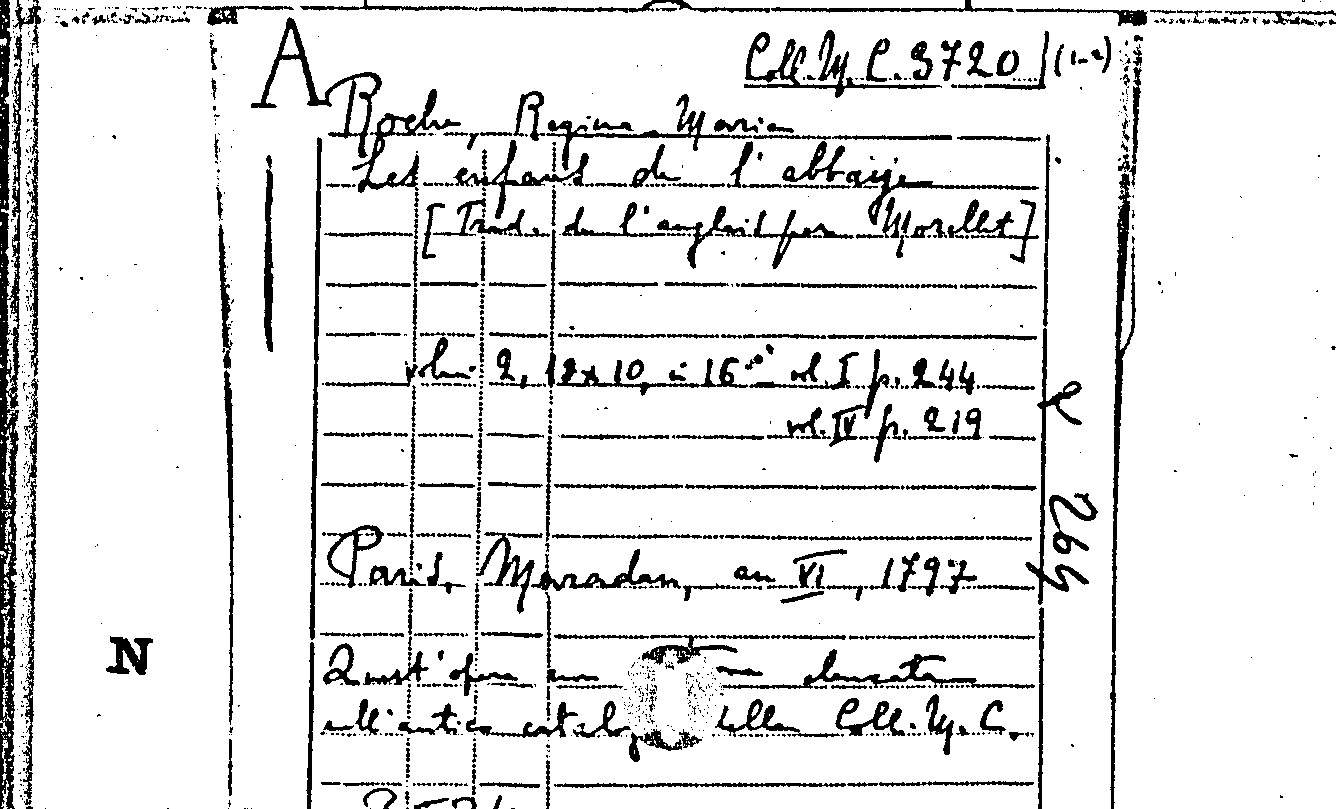 A
Coll. M. C. 3720 (1-2)
Roche, Regina Maria
Les enfants de l'abbaye
[Trad. de l'anglais par Morellet]
volumi 2, 18x10, in 16° vol. I p. 244
vol. IV p. 219
R 266
Paris, Maradan, an VI, 1797
N
Quest'opera non elencata
nell'antico catalogo della Coll. M. C.